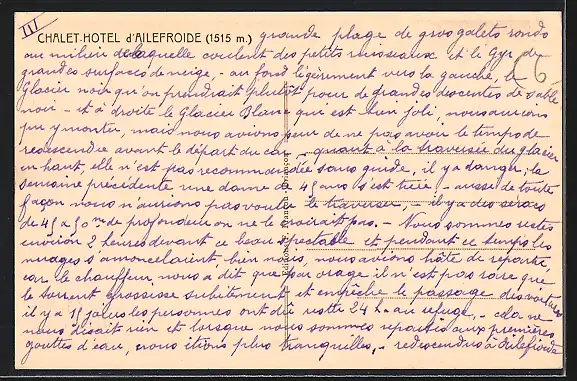 III
CHALET-HOTEL d'AILEFROIDE (1515 m.) grande plage de gros galets ronds
au milieu de laquelle coulent des petits ruisseaux et le Gyr de
grandes surfaces de neige, - au fond légèrement vers la gauche, le
Glacier noir qu'on prendrait plutôt pour de grandes descentes de sable
noir - et à droite le Glacier Blanc qui est bien joli, nous aurions
pu y monter, mais nous avions peur de ne pas avoir le temps de
redescendre avant le départ du car - quant à la traversée du glacier
en haut, elle n'est pas recommandée sans guide, il y a danger, la
semaine précédente une dame de 45 ans s'est tuée, - aussi de toute
façon nous n'aurions pas voulu le traverser, - il y a des séracs
de 45 à 50 m de profondeur on ne le croirait pas. - Nous sommes restés
environ 2 heures devant ce beau spectable et pendant ce temps les
nuages s'amoncelaient, bien nous, nous avions hâte de repartir
car le chauffeur nous a dit que par orage il n'est pas rare que
le torrent grossisse subitement et empêche le passage des voitures
il y a 15 jours les personnes ont dû rester 24 h au refuge, - cela ne
nous disait rien et lorsque nous sommes repartis aux premières
gouttes d'eau, nous étions plus tranquilles, - redescendus à Ailefroide
C6